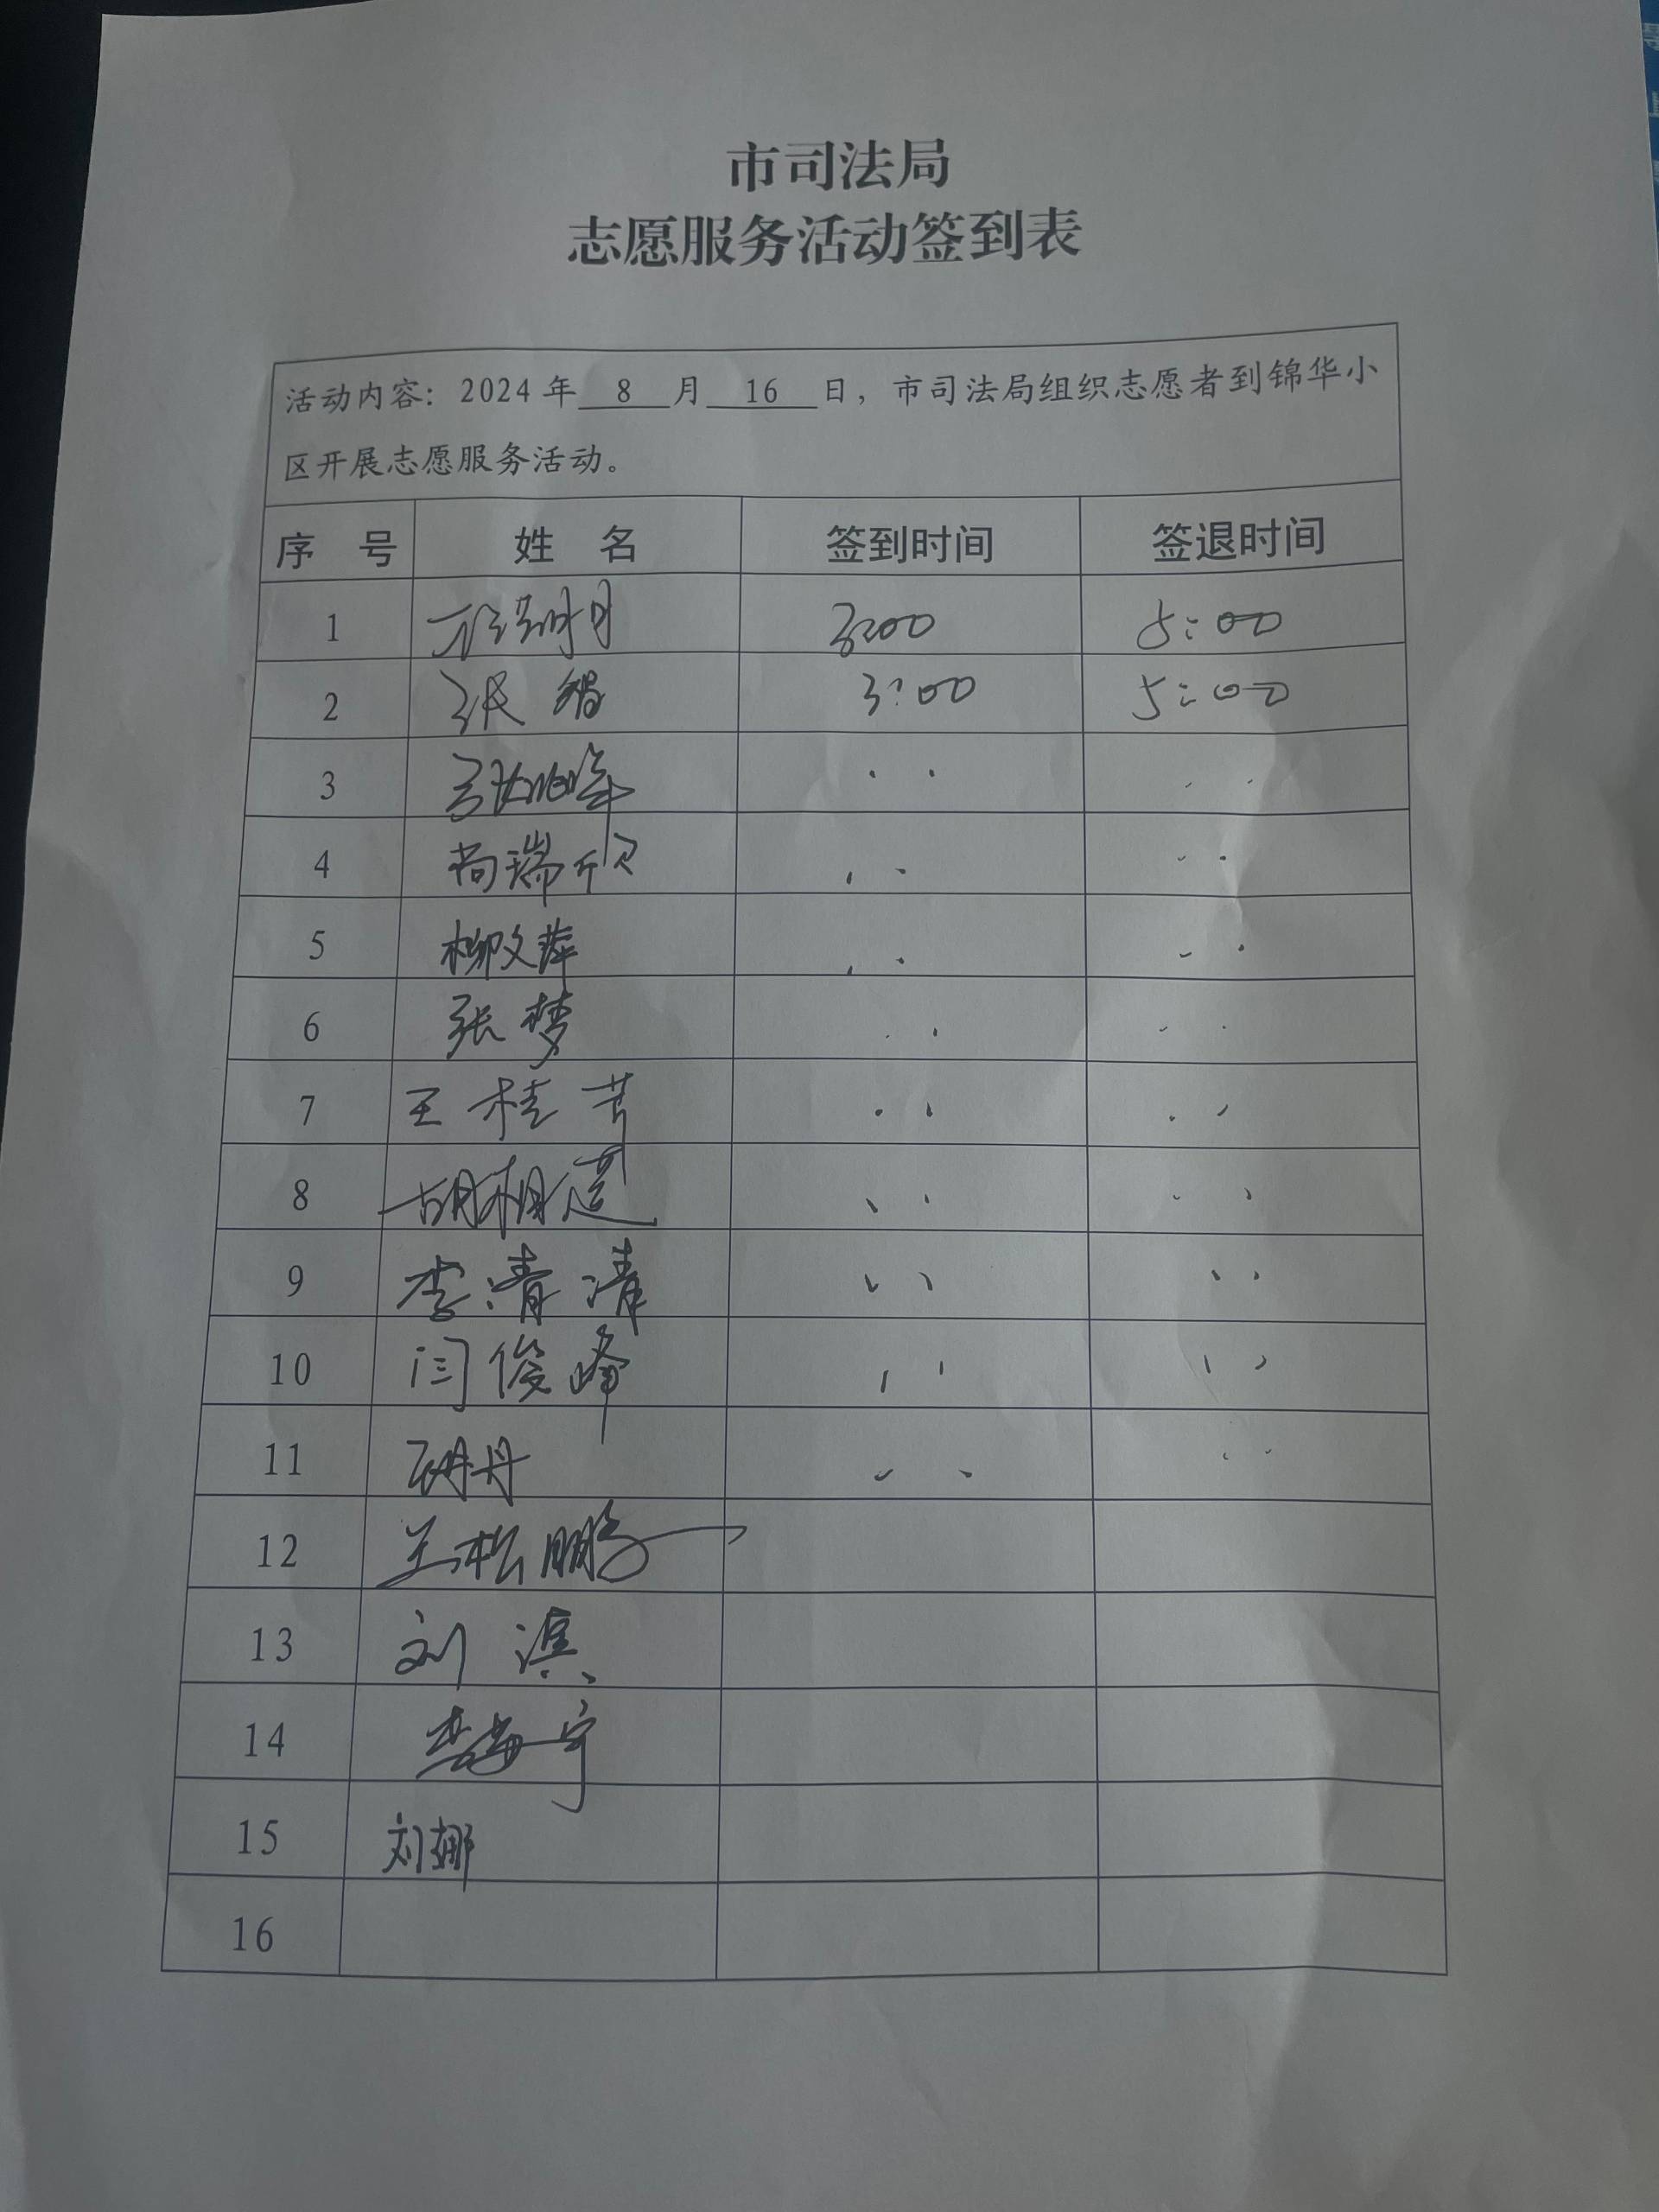 市司法局
志愿服务活动签到表
活动内容：2024年 8 月 16 日，市司法局组织志愿者到锦华小
区开展志愿服务活动。
序 号 姓 名 签到时间 签退时间
1 3:00 5:00
2 3:00 5:00
3
4 尚瑞欣
5 柳文萍
6 张梦
7 王桂芳
8 胡相莲
9 李清清
10 闫俊峰
11 丹
12 王松鹏
13 刘滨
14 李海宁
15 刘娜
16